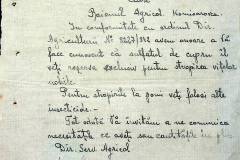 Către
Raionul Agricol Komisarovca
In comformitate cu ordinul Dir.
Agriculturii Nº 2267/942 avem onoare a vă
face cunoscut că sulfatul de cupru îl
veți rezerva exclusiv pentru stropirea vițelor
nobile.
Pentru stropitul la pomi veți folosi alte
insecticide. —
Tot odată Vă invităm a ne comunica
necesitățile ce aveți sau cantități în plus
Dir. Serv. Agricol